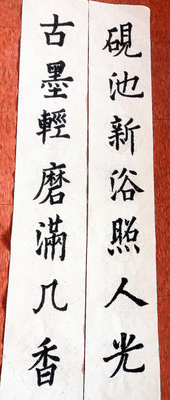 硯池新浴照人光
古墨輕磨滿几香